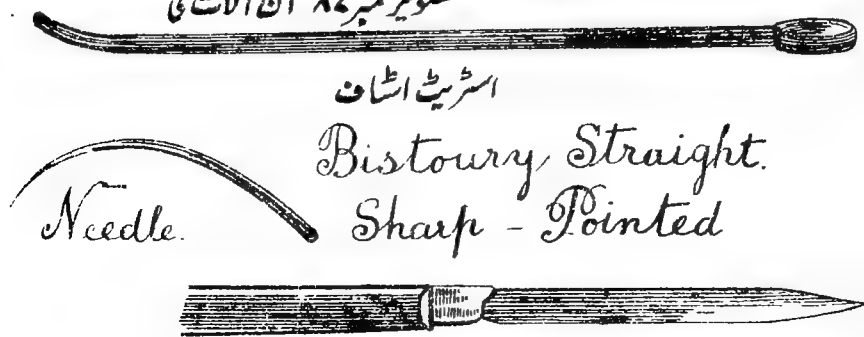 تصویر نمبر ۸۷ ان آلات کی
اسٹریٹ اسٹاف
Bistoury, Straight.
Needle.
Sharp - Pointed